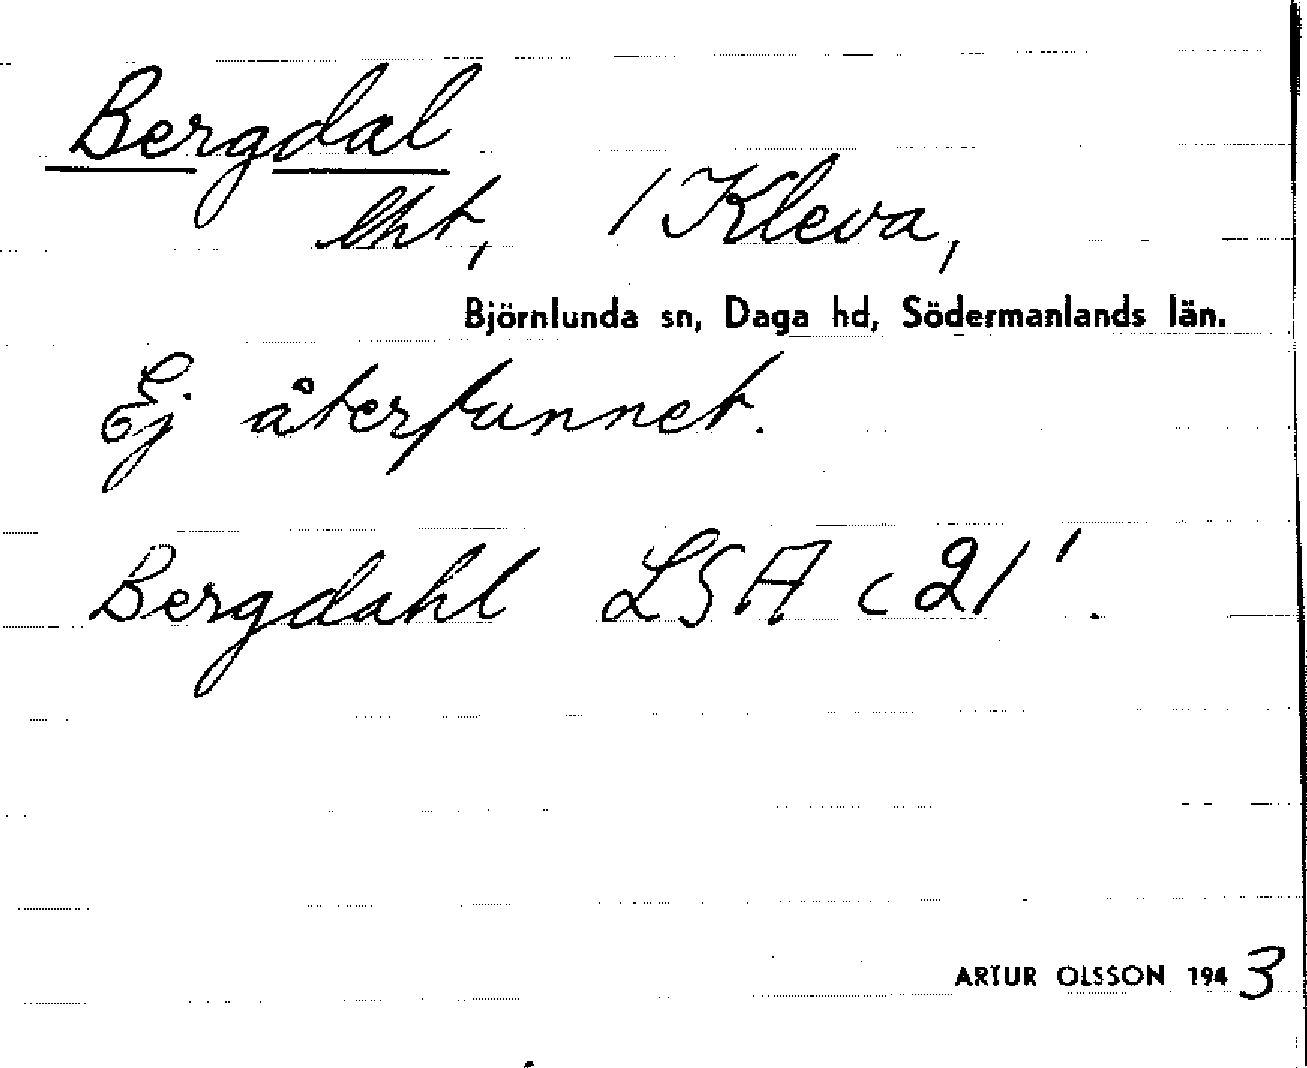 Bergdal
lht, / Kleva,
Björnlunda sn, Daga hd, Södermanlands län.
Ej återfunnet.
Bergdahl LSA c 21'.
ARTUR OLSSON 1943